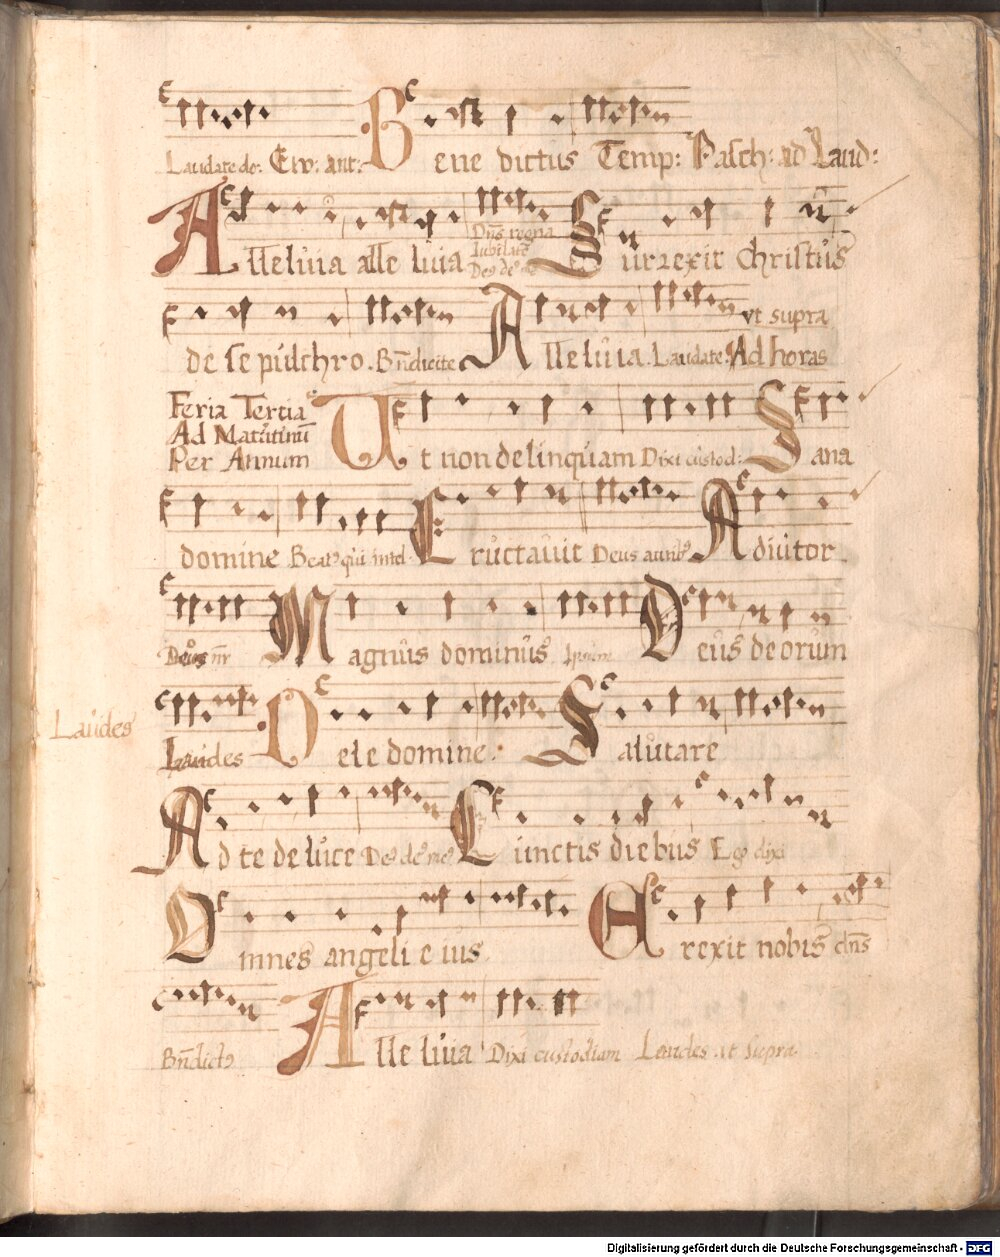 Laudate do: Ew: ant: Bene dictus Temp: Pasch: ad Laud:
Alleluia alle luia Dns regna Surrexit Christus
Iubilate
Deus de
de sepulchro. Bndicite Alleluia. Laudate: Ad horas
vt supra
Feria Tertia
Ad Matutinu
Per Annum
Ut non delinquam Dixi custod: Sana
domine Beat9 qui intel: Eructauit Deus aurib9 Adiutor
Deus nr Magnus dominus Deus deorum
Laudes
Laudes Dele domine: Salutare
Ad te de luce De9 de9 me9 Cunctis diebus Ego dixi
Omnes angeli eius Erexit nobis dns
Bndict9 Alleluia Dixi custodiam Laudes ut supra
Digitalisierung gefördert durch die Deutsche Forschungsgemeinschaft - DFG